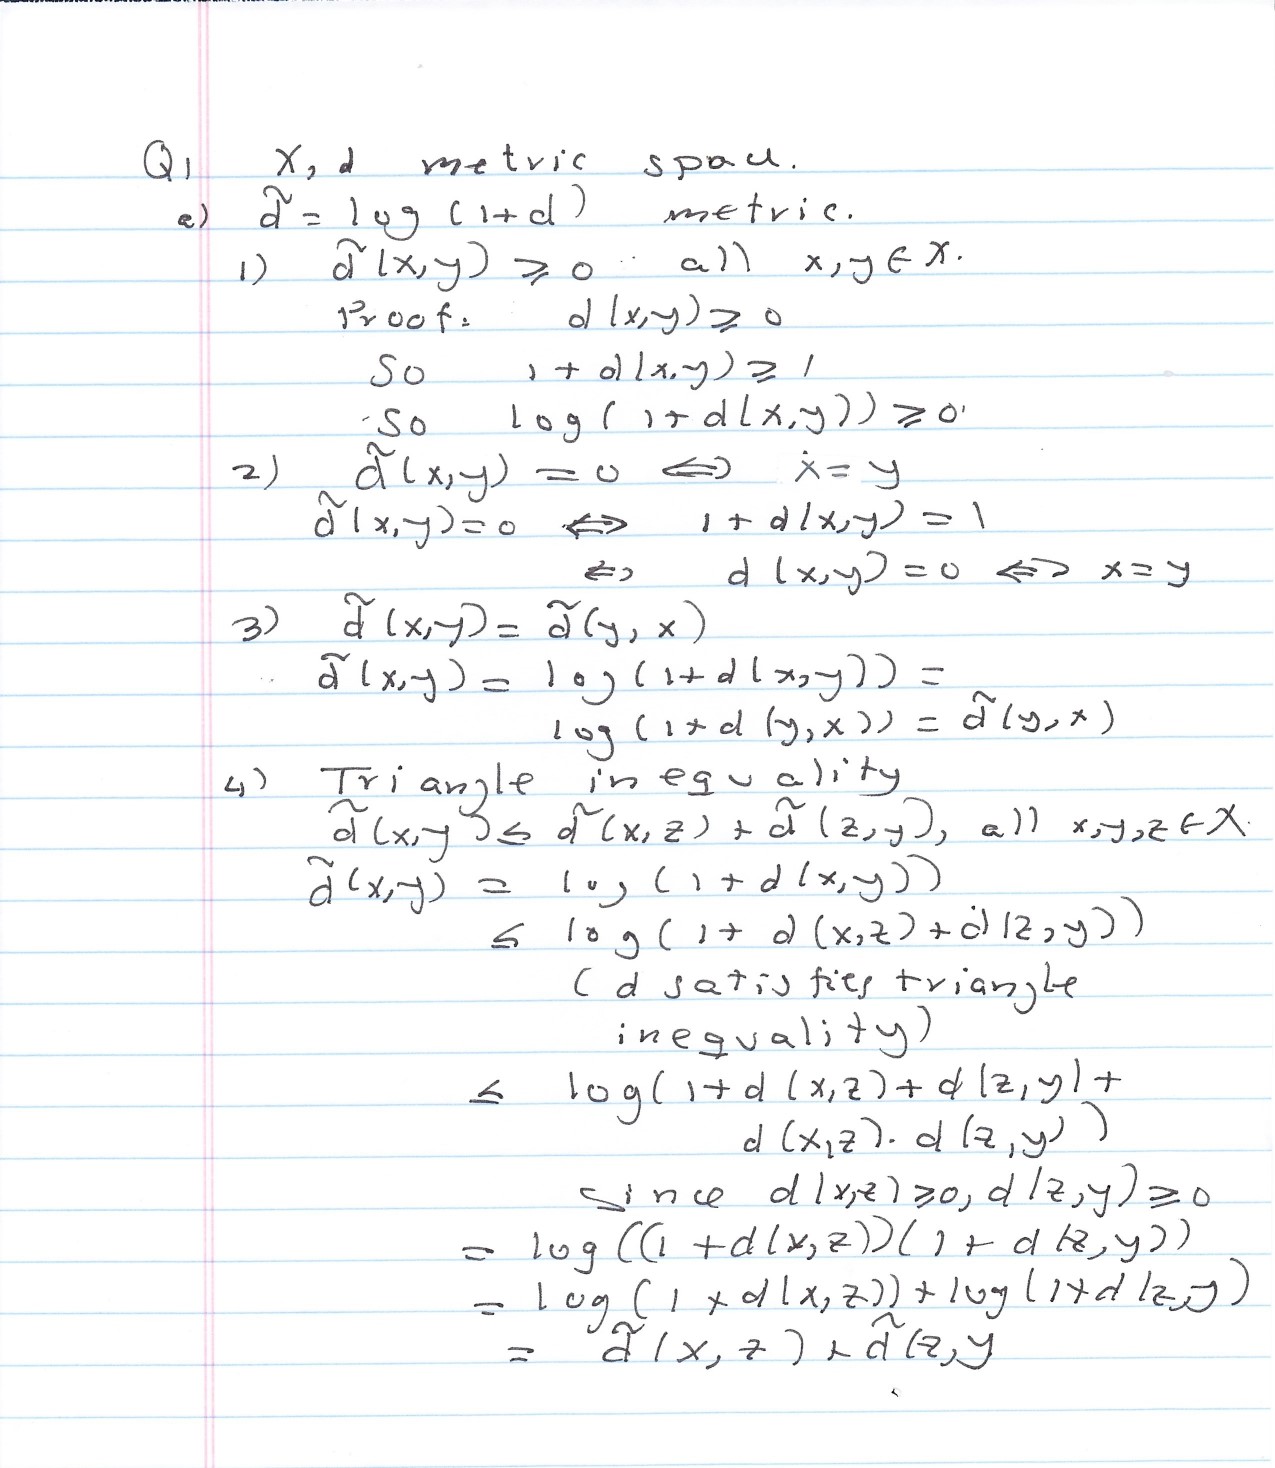 Q1 X, d metric space.
a) d̃ = log (1+d) metric.
1) d̃(x,y) ⩾ 0 all x,y ∈ X.
Proof: d(x,y) ⩾ 0
So 1 + d(x,y) ⩾ 1
So log(1+d(x,y)) ⩾ 0
2) d̃(x,y) = 0 ⟺ x = y
d̃(x,y)=0 ⟺ 1 + d(x,y) = 1
⟺ d(x,y) = 0 ⟺ x = y
3) d̃(x,y) = d̃(y,x)
d̃(x,y) = log(1+d(x,y)) =
log(1+d(y,x)) = d̃(y,x)
4) Triangle inequality
d̃(x,y) ≤ d̃(x,z) + d̃(z,y), all x,y,z ∈ X.
d̃(x,y) = log(1+d(x,y))
≤ log(1+ d(x,z)+d(z,y))
(d satisfies triangle
inequality)
≤ log(1+d(x,z)+d(z,y)+
d(x,z).d(z,y))
since d(x,z)⩾0, d(z,y)⩾0
= log((1+d(x,z))(1+d(z,y))
= log(1+d(x,z))+log(1+d(z,y)
= d̃(x,z)+d̃(z,y